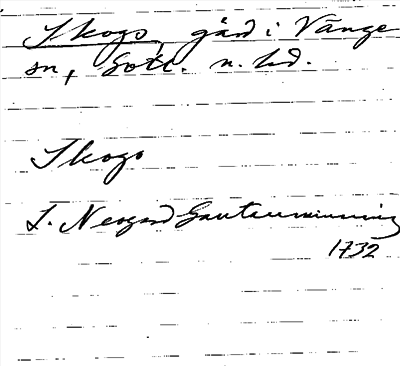 Skogs, gård i Vänge
sn, Gotl. n. hd.
Skogs
J. Neogard Gautauminning
1732